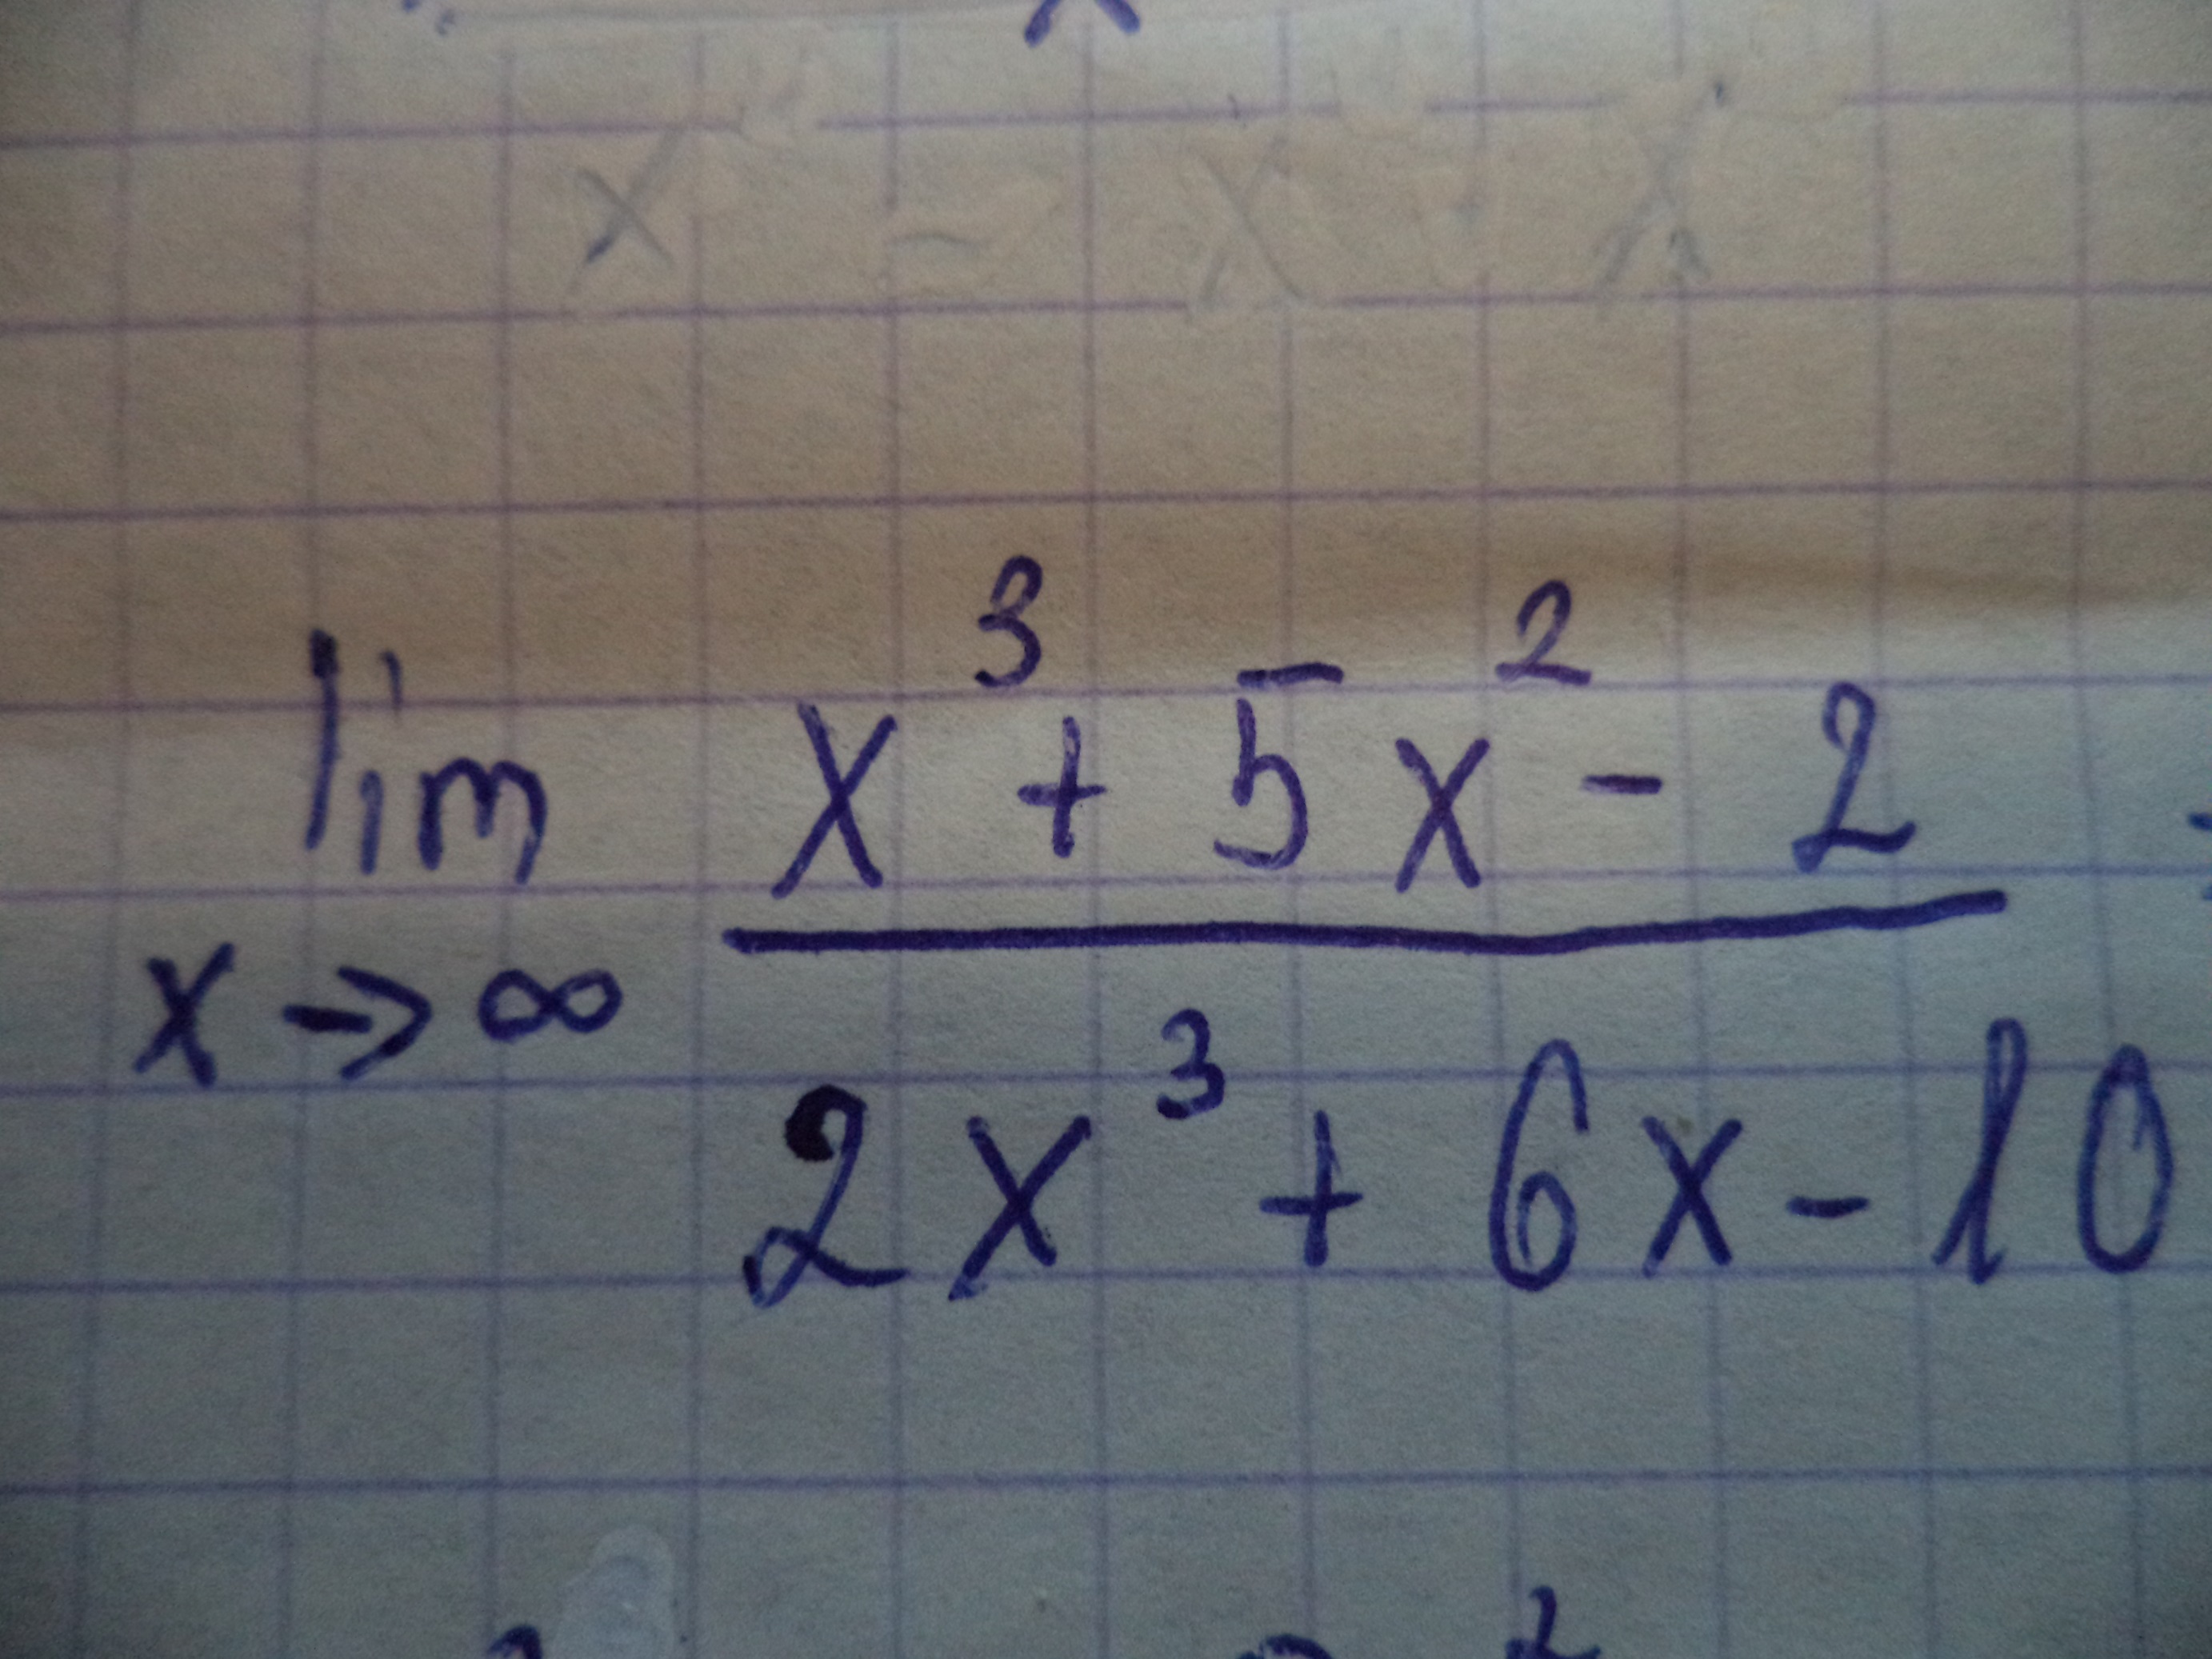 lim x³ + 5x² - 2
x → ∞ 2x³ + 6x - 10